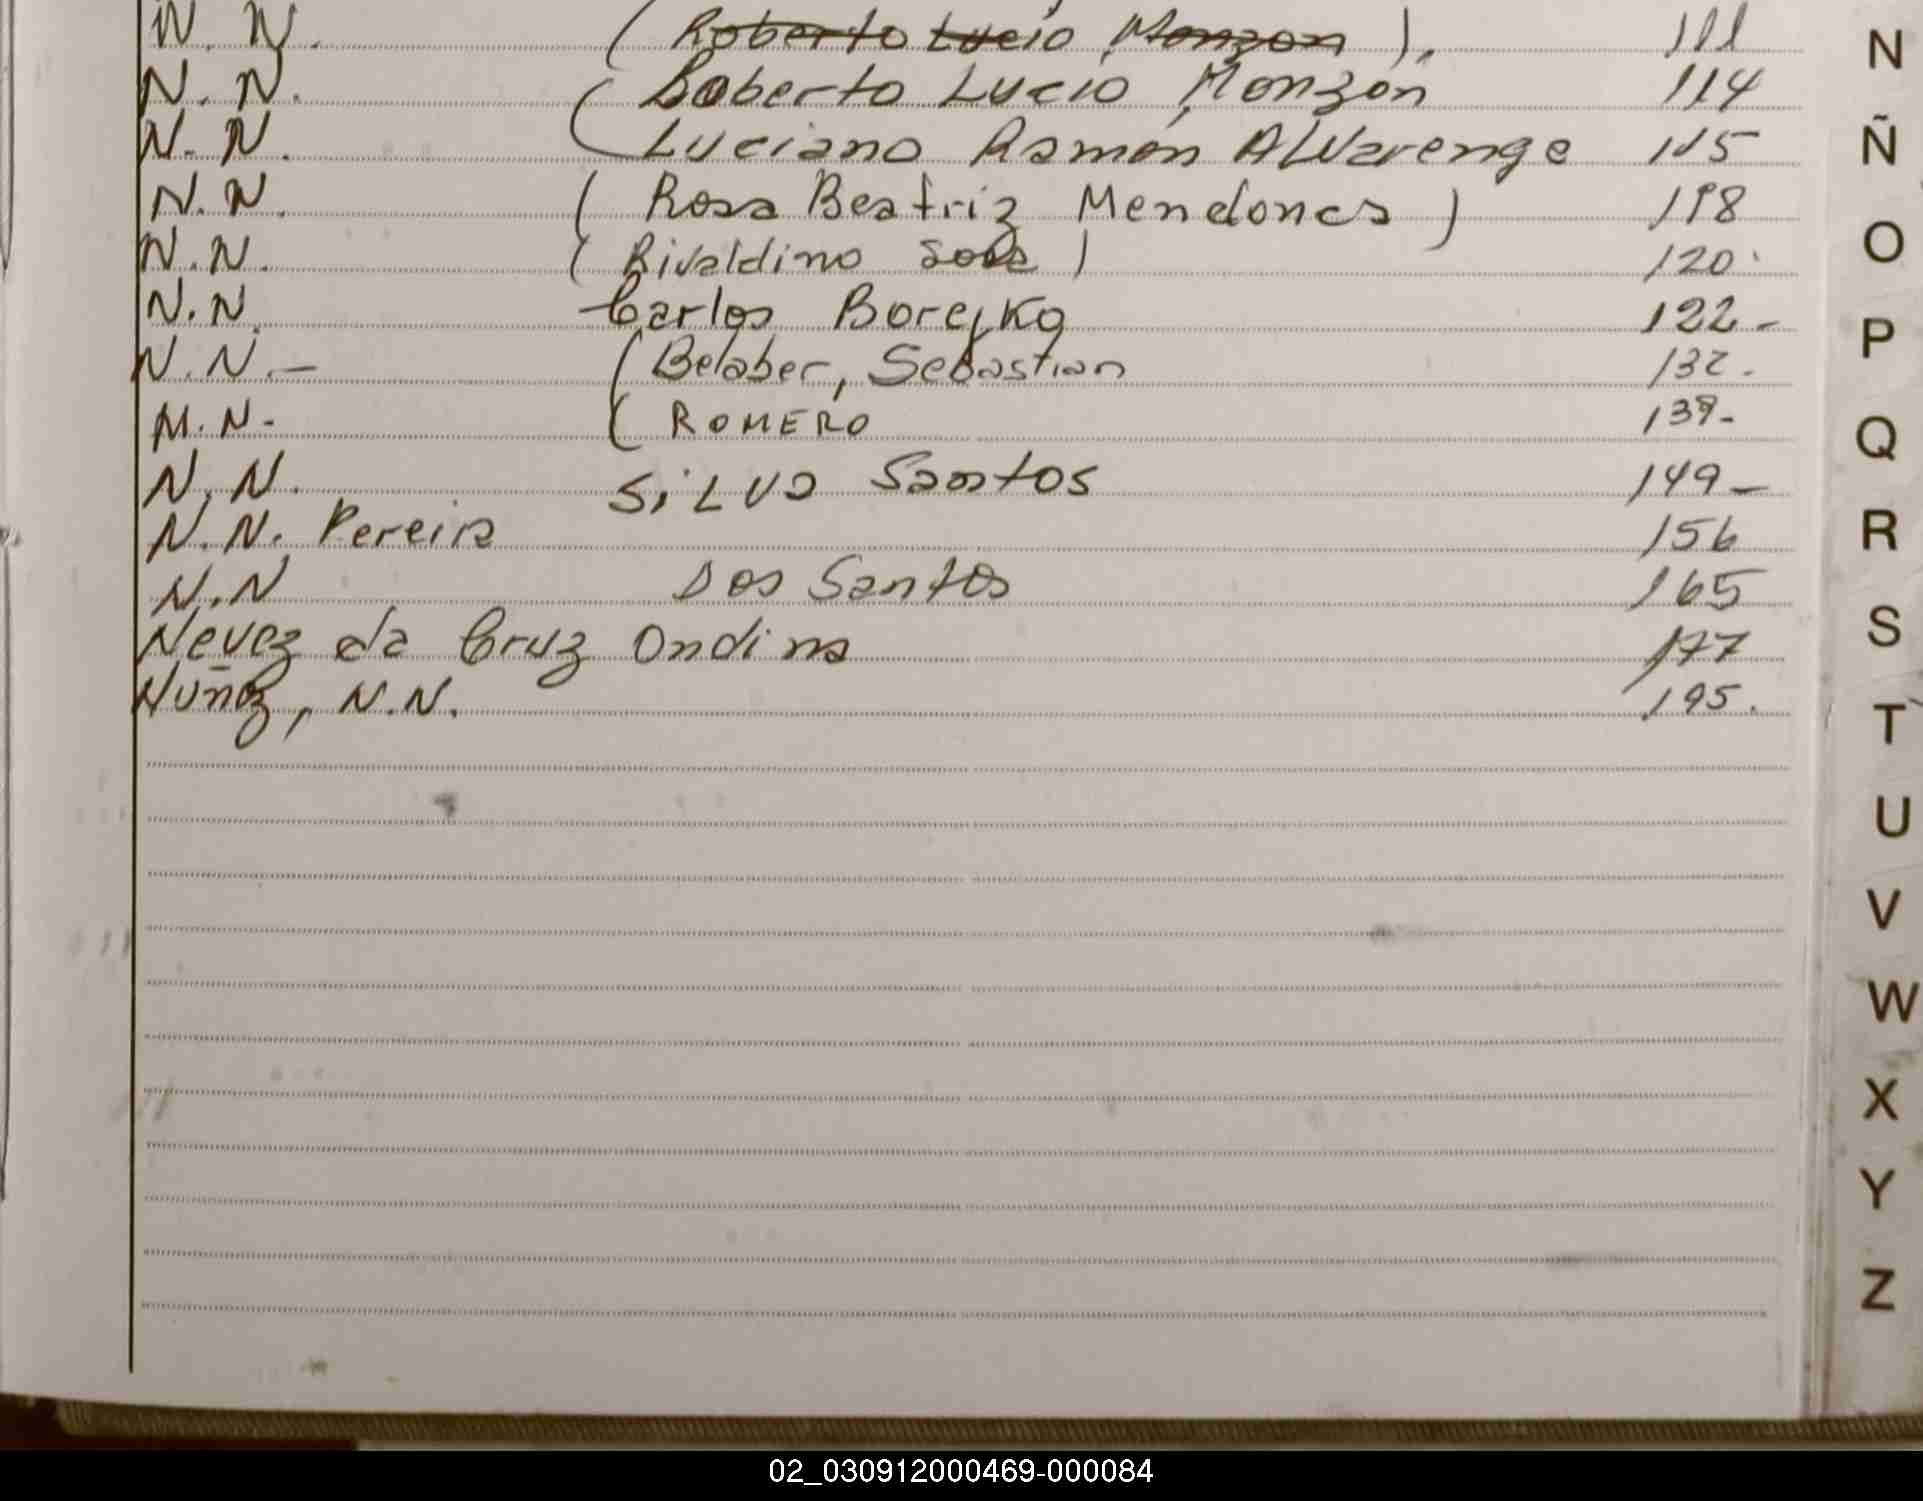 N. N. (Roberto Lucio Monzon). 111
N. N. (Roberto Lucio Monzón 114
N. N. Luciano Ramón Alvarenga 115
N. N. (Rosa Beatriz Mendonca) 118
N. N. (Rivaldino) 120
N. N. Carlos Borejko 122-
N. N. - (Belaber, Sebastian 132.
N. N. - (ROMERO 139-
N. N. Silva Santos 149-
N. N. Pereira 156
N. N Dos Santos 165
Nevez da Cruz Ondina 177
Nuñez, N.N. 195.
N
Ñ
O
P
Q
R
S
T
U
V
W
X
Y
Z
02_030912000469-000084